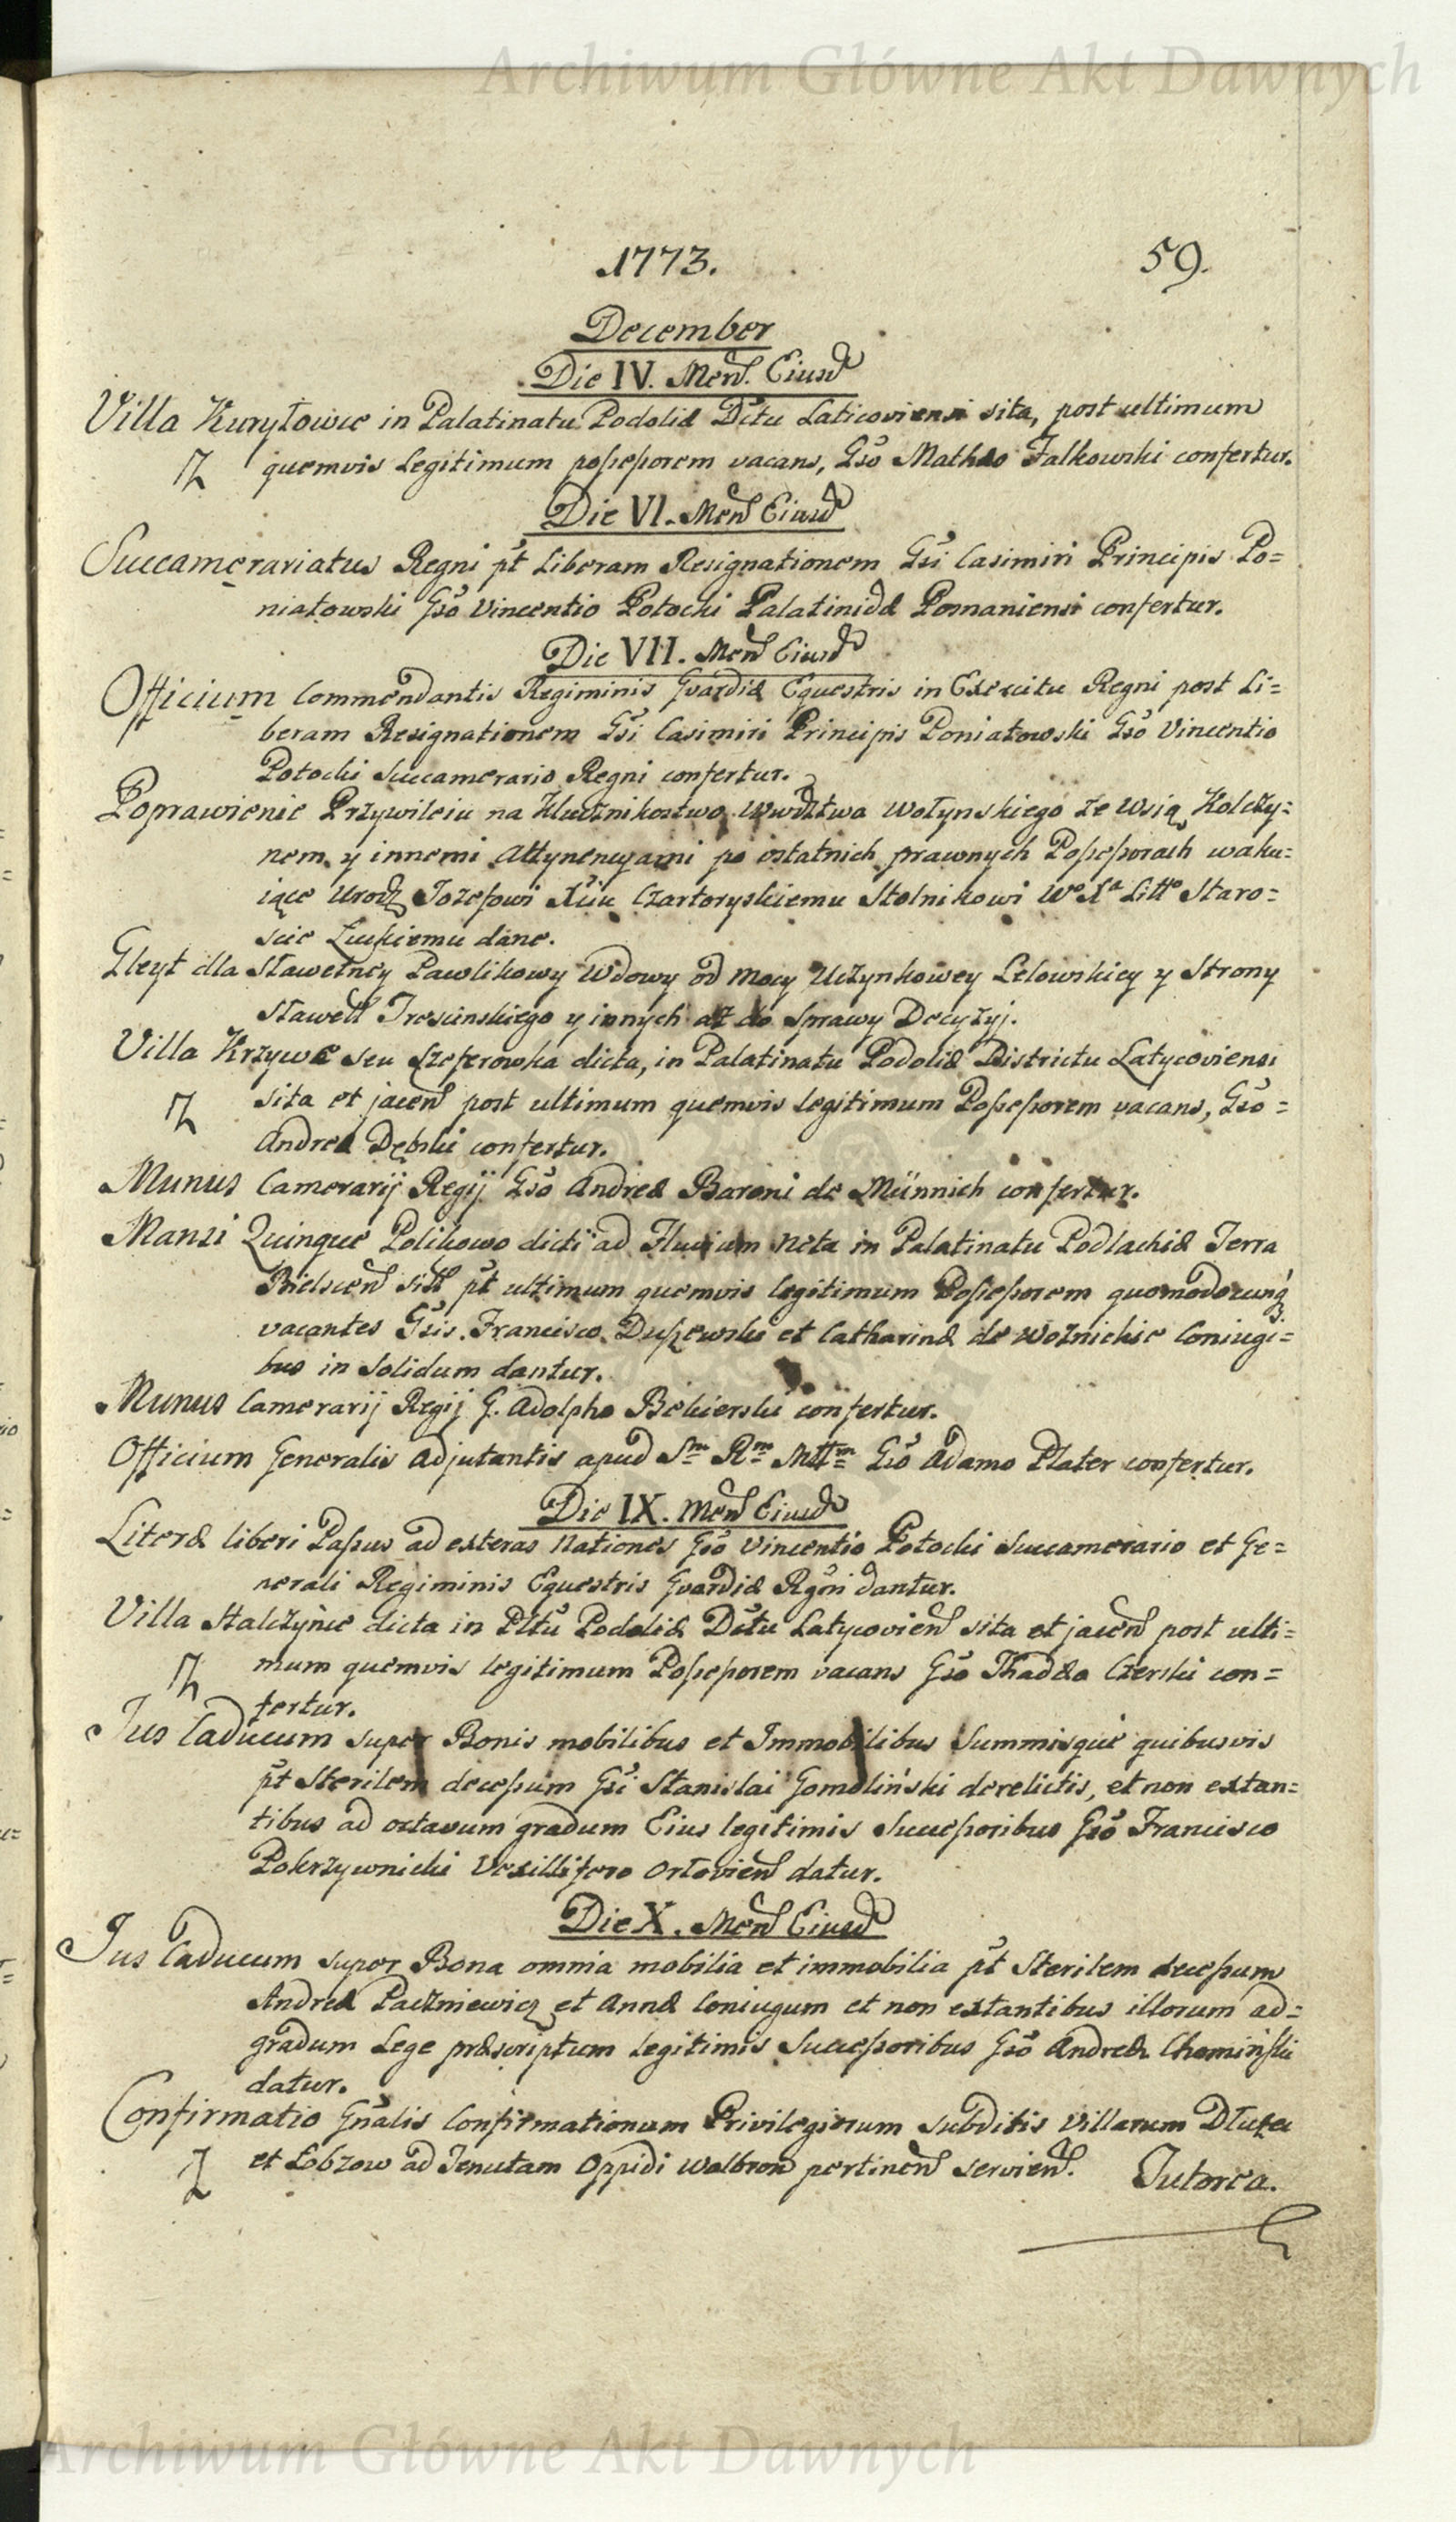 Archiwum Główne Akt Dawnych
1773.
59.
December
Die IV. Mens. Eiusd
Villa Kuryłowce in Palatinatu Podoliæ Dctu Laticoviensi sita, post ultimum
quemvis legitimum possessorem vacans, Gso Mathæo Falkowski confertur.
Die VI. Mens Eiusd
Succamerariatus Regni pt Liberam Resignationem Gsi Casimiri Principis Po=
niatowski Gso Vincentio Potocki Palatinidæ Posnaniensi confertur.
Die VII. Mens Eiusd
Officium Commendantis Regiminis Gvardiæ Equestris in Exercitu Regni post Li=
beram Resignationem Gsi Casimiri Principis Poniatowski Gso Vincentio
Potocki Succamerario Regni confertur.
Poprawienie Przywileiu na Klucznikostwo Wwdztwa Wołynskiego ze Wsią Kolczy=
nem y innemi Attynencyami po ostatnich prawnych Possessorach waku=
iące Urodz Jozefowi Xciu Czartoryskiemu Stolnikowi Wo Xa Litto Staro=
scie Łuckiemu dane.
Gleyt dla Sławetney Pawlikowy Wdowy od Mocy Uczynkowey Lelowskiey y Strony
Sławett Trescinskiego y innych aż do Sprawy Decyzyj.
Villa Krzywe seu Szeferowka dicta, in Palatinatu Podoliæ Districtu Latycoviensi
sita et jacens post ultimum quemvis legitimum Possessorem vacans, Gso =
Andreæ Dębski confertur.
Munus Camerarij Regij Gso Andreæ Baroni de Münnich confertur.
Mansi Quinque Polikowo dicti ad Fluvium Neta in Palatinatu Podlachiæ Terra
Bielscen sitt pt ultimum quemvis legitimum Possessorem quomodocunq
vacantes Gsis. Francisco Duszewski et Catharinæ de Woznickie Coniugi=
bus in Solidum dantur.
Munus Camerarij Regij G. Adolpho Bekierski confertur.
Officium Generalis Adjutantis apud Sm Rm Mttm Gso Adamo Plater confertur.
Die IX. Mens Eiusd
Literæ liberi Passus ad exteras Nationes Gso Vincentio Potocki Succamerario et Ge=
nerali Regiminis Equestris Gvardiæ Rgni dantur.
Villa Halczynce dicta in Pltu Podoliæ Dctu Latycovien sita et jacens post ulti=
mum quemvis legitimum Possessorem vacans Gso Thadæo Czerski con=
fertur.
Jus Caducum super Bonis mobilibus et Immobilibus Summisque quibusvis
pt Sterilem decessum Gsi Stanislai Gomoliński derelictis, et non extan=
tibus ad octavum gradum Eius legitimis Successoribus Gso Francisco
Pokrzywnicki Vexillifero Orłovien datur.
Die X. Mens Eiusd
Jus Caducum super Bona omnia mobilia et immobilia pt Sterilem decessum
Andreæ Paczniewicz et Annæ Coniugum et non extantibus illorum ad=
gradum Lege præscriptum legitimis Successoribus Gso Andreæ Chomiński
datur.
Confirmatio Gnalis Confirmationum Privilegiorum subditis Villarum Dłużec
et Łobzow ad Tenutam Oppidi Wolbrom pertinen servien.
Jutorca.
Archiwum Główne Akt Dawnych